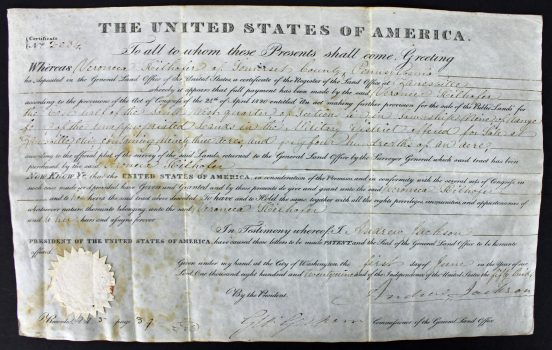 THE UNITED STATES OF AMERICA.
Certificate
To all to whom these Presents shall come, Greeting
WHEREAS Veronica Hielhofer of Somerset County Pennsylvania
has deposited in the General Land Office of the United States, a certificate of the Register of the Land Office at Zanesville
whereby it appears that full payment has been made by the said Veronica Hielhofer
according to the provisions of the Act of Congress of the 24th of April 1820 entitled An act making further provision for the sale of the Public Lands for
the West half of the quarter of section in township of range
of the unappropriated lands in the Military District offered for sale at
Zanesville, Ohio, containing acres, and forty four hundredths of an acre,
according to the official plat of the survey of the said Lands, returned to the General Land Office by the Surveyor General which said tract has been
purchased by the said Veronica Hielhofer
NOW KNOW YE, that the UNITED STATES OF AMERICA, in consideration of the Premises and in conformity with the several acts of Congress in
such case made and provided, have Given and Granted and by these presents do give and grant unto the said Veronica Hielhofer
and to her heirs the said tract above described: To have and to Hold the same, together with all the rights, privileges, immunities, and appurtenances of
whatsoever nature, thereunto belonging, unto the said Veronica Hielhofer
and to her heirs and assigns forever.
In Testimony whereof, I, Andrew Jackson
PRESIDENT OF THE UNITED STATES OF AMERICA, have caused these letters to be made PATENT and the Seal of the General Land Office to be hereunto
affixed.
Given under my hand at the City of Washington, the first day of June in the Year of our
Lord One thousand eight hundred and twenty nine and of the Independence of the United States the fifty third
By the President
Andrew Jackson
page 39
Commissioner of the General Land Office